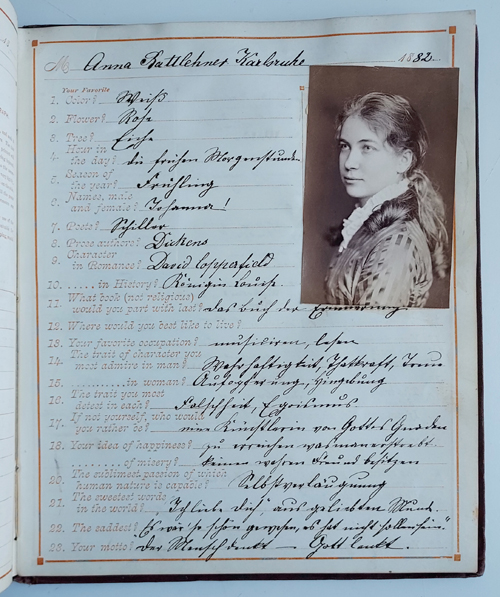 M Anna Battlehner Karlsruhe 1882
Your Favorite
1. Color? Weiß
2. Flower? Rose
3. Tree? Eiche
4. Hour in the day? die frühen Morgenstunden
5. Season of the year? Frühling
6. Names, male and female? Johanna!
7. Poets? Schiller
8. Prose authors? Dickens
9. Character in Romance? David Copperfield
10. ..... in History? Königin Louise.
11. What book (not religious) would you part with last? das Buch der Erinnerung
12. Where would you best like to live?
13. Your favorite occupation? musiciren, lesen
14. The trait of character you most admire in man? Wahrhaftigkeit, Thatkraft, Treue
15. .......... in woman? Aufopferung, Hingebung
16. The trait you most detest in each? Falschheit, Egoismus
17. If not yourself, who would you rather be? eine Künstlerin von Gottes Gnaden
18. Your idea of happiness? zu erreichen was man erstrebt.
........ of misery? keinen wahren Freund besitzen
20. The sublimest passion of which human nature is capable? Selbstverläugnung
21. The sweetest words in the world? „Ich liebe Dich", aus geliebtem Mund.
22. The saddest? „Es wär so schön gewesen, es hat nicht sollen sein"
23. Your motto? Der Mensch denkt — Gott lenkt.